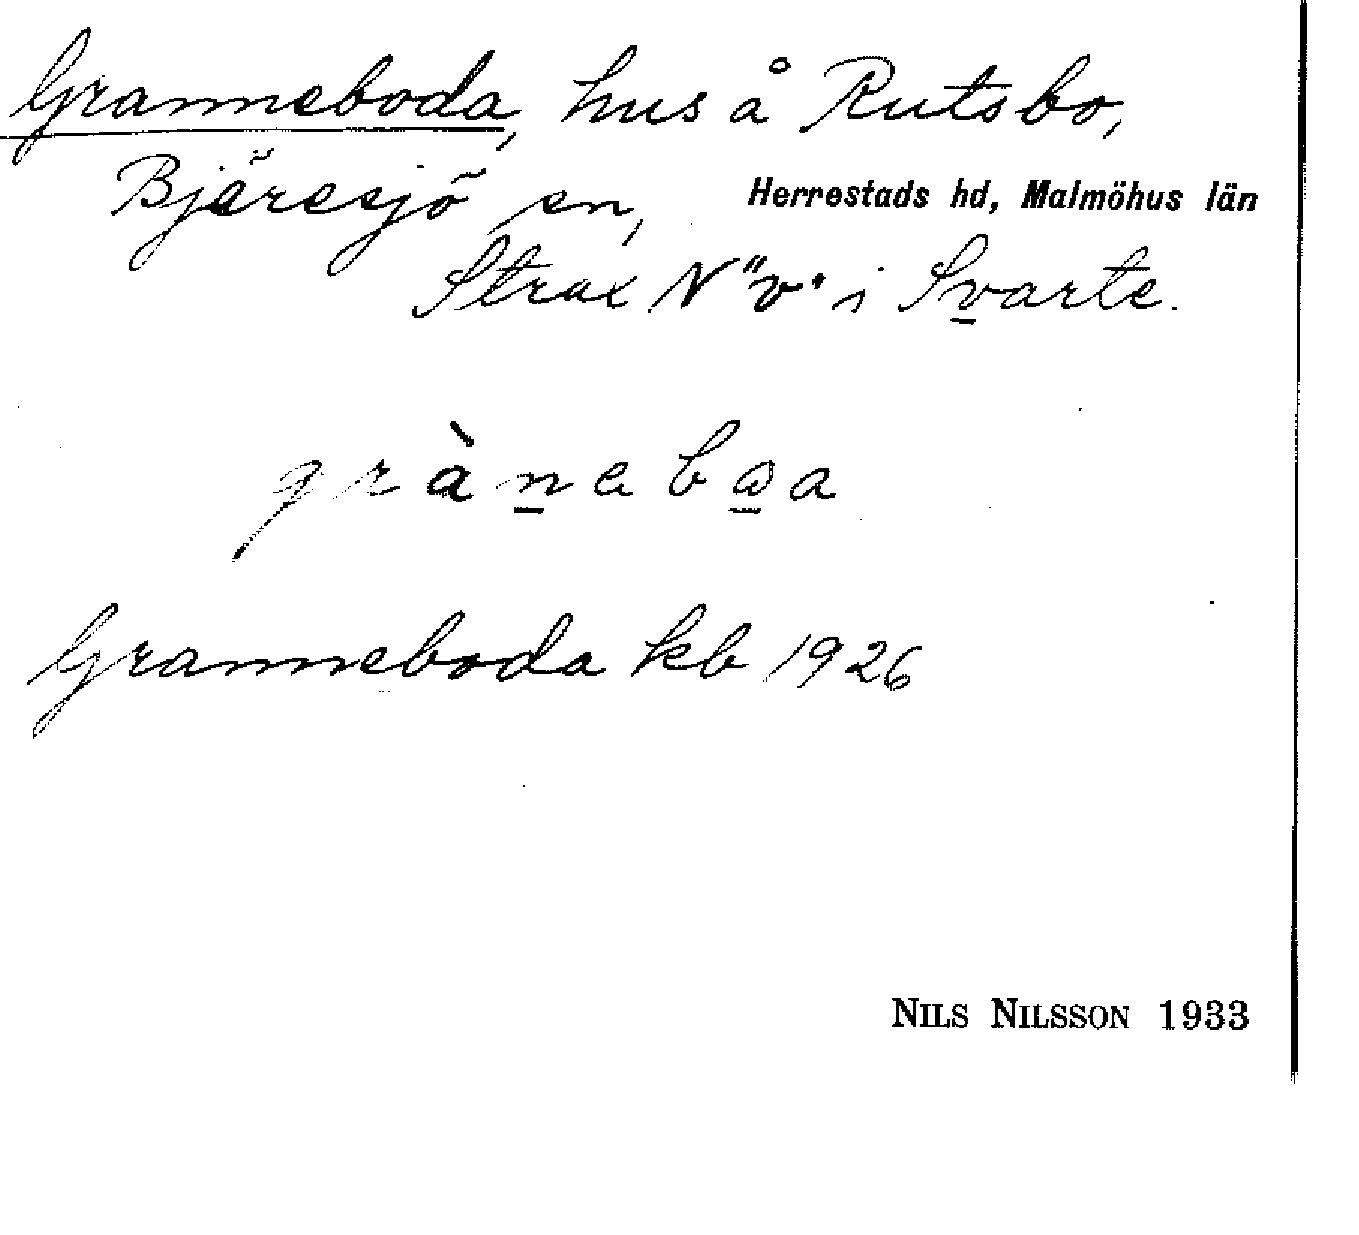 Granneboda, hus å Rutsbo,
Bjäresjö sn, Herrestads hd, Malmöhus län
Strax N "v." i Svarte.
gràneboa
Granneboda kb 1926
NILS NILSSON 1933